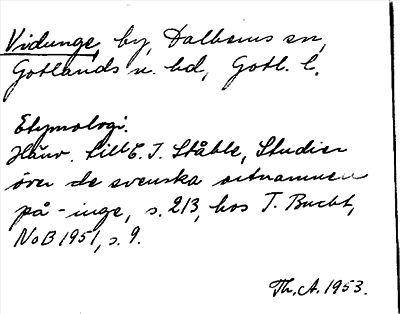 Vidunge, by, Dalhems sn,
Gotlands n. hd, Gotl. l.
Etymologi.
Hänv. till E. I. Ståhle, Studier
över de svenska ortnamnen
på -inge, s. 213, hos T. Bucht,
NoB 1951, s. 9.
Th. A. 1953.